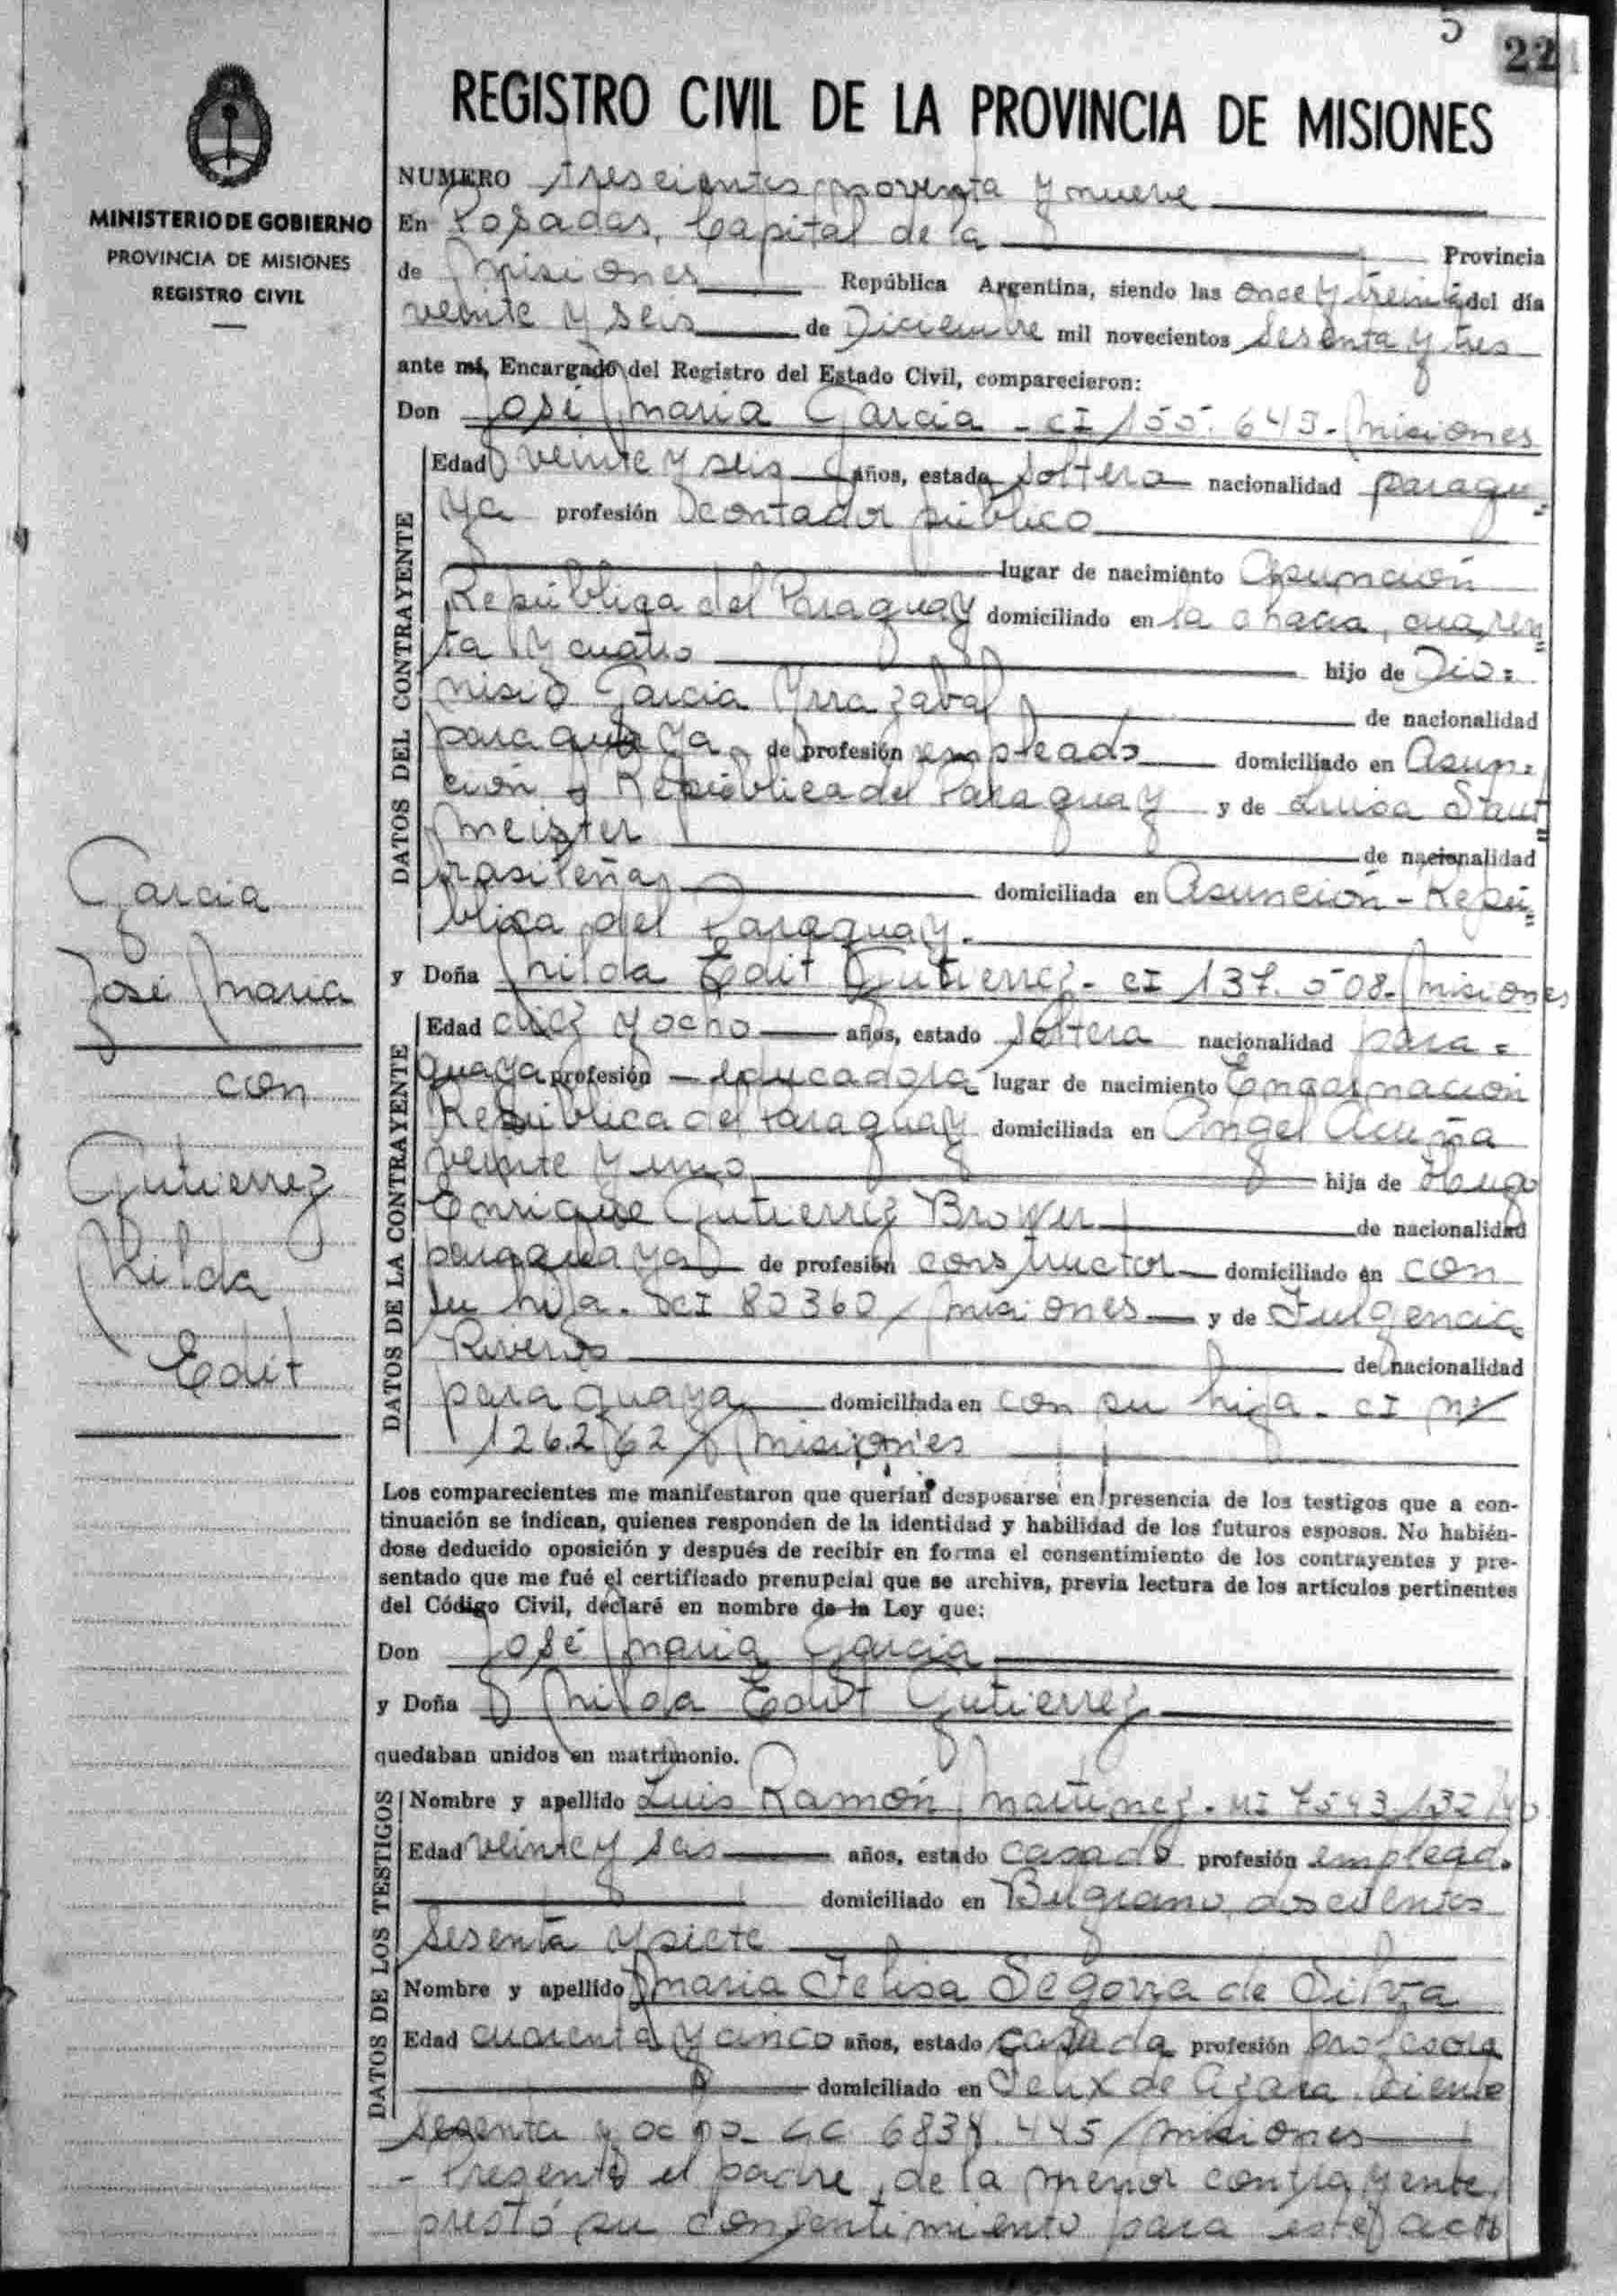 22
REGISTRO CIVIL DE LA PROVINCIA DE MISIONES
MINISTERIO DE GOBIERNO
PROVINCIA DE MISIONES
REGISTRO CIVIL
NUMERO trescientos noventa y nueve
En Posadas, Capital de la Provincia
de Misiones República Argentina, siendo las once y treinta del día
veinte y seis de Diciembre mil novecientos sesenta y tres
ante mí, Encargado del Registro del Estado Civil, comparecieron:
Don José Maria Garcia - CI 155.645- Misiones
DATOS DEL CONTRAYENTE
Edad veinte y seis años, estado soltero nacionalidad paragu=
ya profesión contador público
lugar de nacimiento Asunción
República del Paraguay domiciliado en la chacra, cuaren
ta y cuatro hijo de Dio=
nisio Garcia Yrrazabal de nacionalidad
paraguaya de profesión empleado domiciliado en Asun=
ción República del Paraguay y de Luisa
meister de nacionalidad
brasileña domiciliada en Asunción - Repú=
blica del Paraguay.
y Doña Hilda Edit Gutierrez - CI 137.508- Misiones
DATOS DE LA CONTRAYENTE
Edad diez y ocho años, estado soltera nacionalidad para=
guaya profesión educadora lugar de nacimiento Encarnación
República del Paraguay domiciliada en Angel Acuña
veinte y uno hija de Hugo
Enrique Gutierrez Brower de nacionalidad
paraguaya de profesión constructor domiciliado en con
su hija. CI 80360/Misiones y de Fulgencia
Riveros de nacionalidad
paraguaya domiciliada en con su hija. CI nº
126262/Misiones
Garcia
José Maria
con
Gutierrez
Hilda
Edit
Los comparecientes me manifestaron que querían desposarse en presencia de los testigos que a con-
tinuación se indican, quienes responden de la identidad y habilidad de los futuros esposos. No habién-
dose deducido oposición y después de recibir en forma el consentimiento de los contrayentes y pre-
sentado que me fué el certificado prenupcial que se archiva, previa lectura de los artículos pertinentes
del Código Civil, declaré en nombre de la Ley que:
Don José Maria Garcia
y Doña Hilda Edit Gutierrez
quedaban unidos en matrimonio.
DATOS DE LOS TESTIGOS
Nombre y apellido Luis Ramón Martinez - MI 7543132
Edad veinte y seis años, estado casado profesión empleado
domiciliado en Belgrano, doscientos
sesenta y siete
Nombre y apellido Maria Felisa Segovia de Silva
Edad cuarenta y cinco años, estado casada profesión profesora
domiciliado en Felix de Azara ciento
sesenta y ocho 445/Misiones
- Presente el padre de la menor contrayente,
prestó su consentimiento para este acto